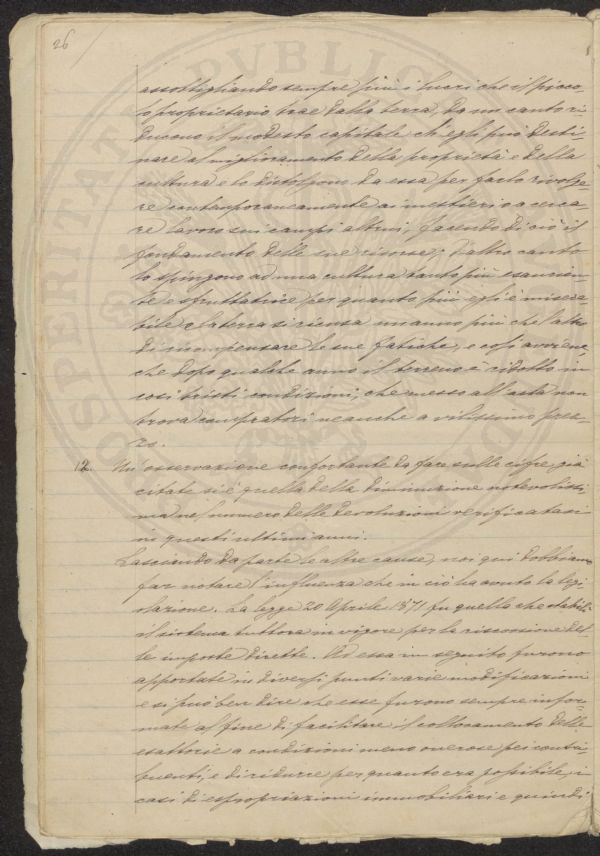 26
assottigliando sempre più i lucri che il picco-
lo proprietario trae dalla terra, da un canto ri-
ducono il modesto capitale ch'egli può desti-
nare al miglioramento della proprietà e della
cultura e lo distolgono da essa per farlo rivolge-
re contemporaneamente a mestieri o a cerca-
re lavoro sui campi altrui, facendo di ciò il
fondamento delle sue risorse; d'altro canto
lo spingono ad una cultura tanto più esaurien-
te e sfruttatrice per quanto più egli è misera-
bile e la terra si ricusa un anno più che l'altro
di ricompensare le sue fatiche, e così avviene
che dopo qualche anno il terreno è ridotto in
così tristi condizioni, che messo all'asta non
trova compratori neanche a vilissimo prez-
zo.
12. Un'osservazione confortante da fare sulle cifre già
citate si è quella della diminuzione notevolissi-
ma nel numero delle devoluzioni verificatasi
in questi ultimi anni.
Lasciando da parte le altre cause, noi qui dobbiamo
far notare l'influenza che in ciò ha avuto la legi-
slazione. La legge 20 Aprile 1871 fu quella che stabilì
il sistema tuttora in vigore per la riscossione del-
le imposte dirette. Ad essa in seguito furono
apportate in diversi punti varie modificazioni
e si può ben dire che esse furono sempre infor-
mate al fine di facilitare il collocamento delle
esattorie a condizioni meno onerose pei contri-
buenti, e di ridurre per quanto era possibile, i
casi di espropriazioni immobiliari e quindi